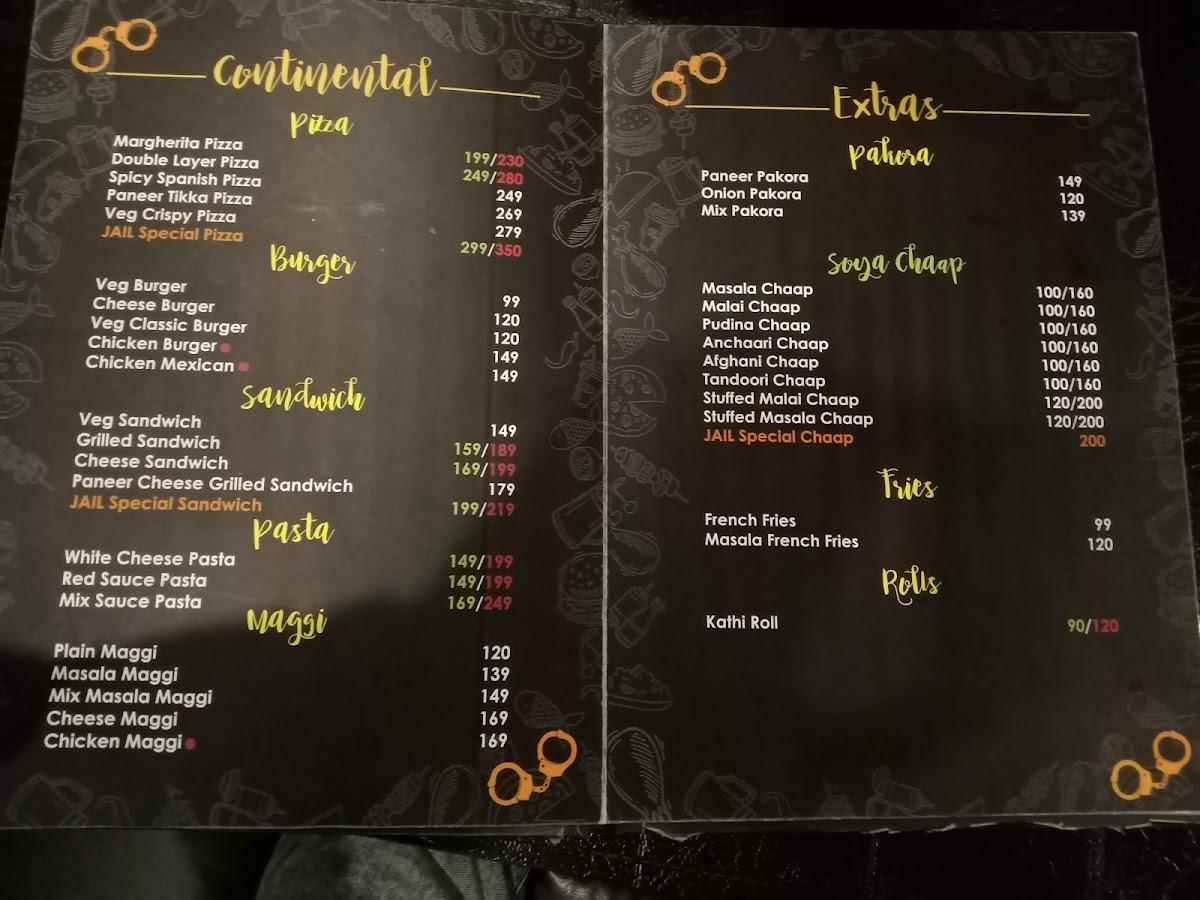 Continental
Pizza
Margherita Pizza 199/230
Double Layer Pizza 249/280
Spicy Spanish Pizza 249
Paneer Tikka Pizza 269
Veg Crispy Pizza 279
JAIL Special Pizza 299/350
Burger
Veg Burger 99
Cheese Burger 120
Veg Classic Burger 120
Chicken Burger 149
Chicken Mexican 149
Sandwich
Veg Sandwich 149
Grilled Sandwich 159/189
Cheese Sandwich 169/199
Paneer Cheese Grilled Sandwich 179
JAIL Special Sandwich 199/219
Pasta
White Cheese Pasta 149/199
Red Sauce Pasta 149/199
Mix Sauce Pasta 169/249
Maggi
Plain Maggi 120
Masala Maggi 139
Mix Masala Maggi 149
Cheese Maggi 169
Chicken Maggi 169
Extras
Pakora
Paneer Pakora 149
Onion Pakora 120
Mix Pakora 139
Soya Chaap
Masala Chaap 100/160
Malai Chaap 100/160
Pudina Chaap 100/160
Anchaari Chaap 100/160
Afghani Chaap 100/160
Tandoori Chaap 100/160
Stuffed Malai Chaap 120/200
Stuffed Masala Chaap 120/200
JAIL Special Chaap 200
Fries
French Fries 99
Masala French Fries 120
Rolls
Kathi Roll 90/120